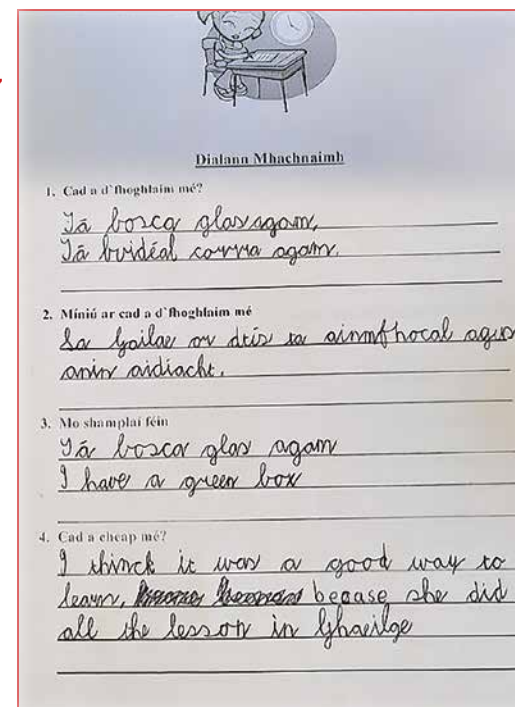 Dialann Mhachnaimh
1. Cad a d'fhoghlaim mé?
Tá bosca glas agam,
Tá buidéal corcra agam.
2. Míniú ar cad a d'fhoghlaim mé
Sa Gailae ar dtís ta ainmfhocal agus
anin aidiacht.
3. Mo shamplaí féin
Tá bosca glas agam
I have a green box
4. Cad a cheap mé?
I thinck it was a good way to
learn, beoase she did
all the lesson in Ghaeilge